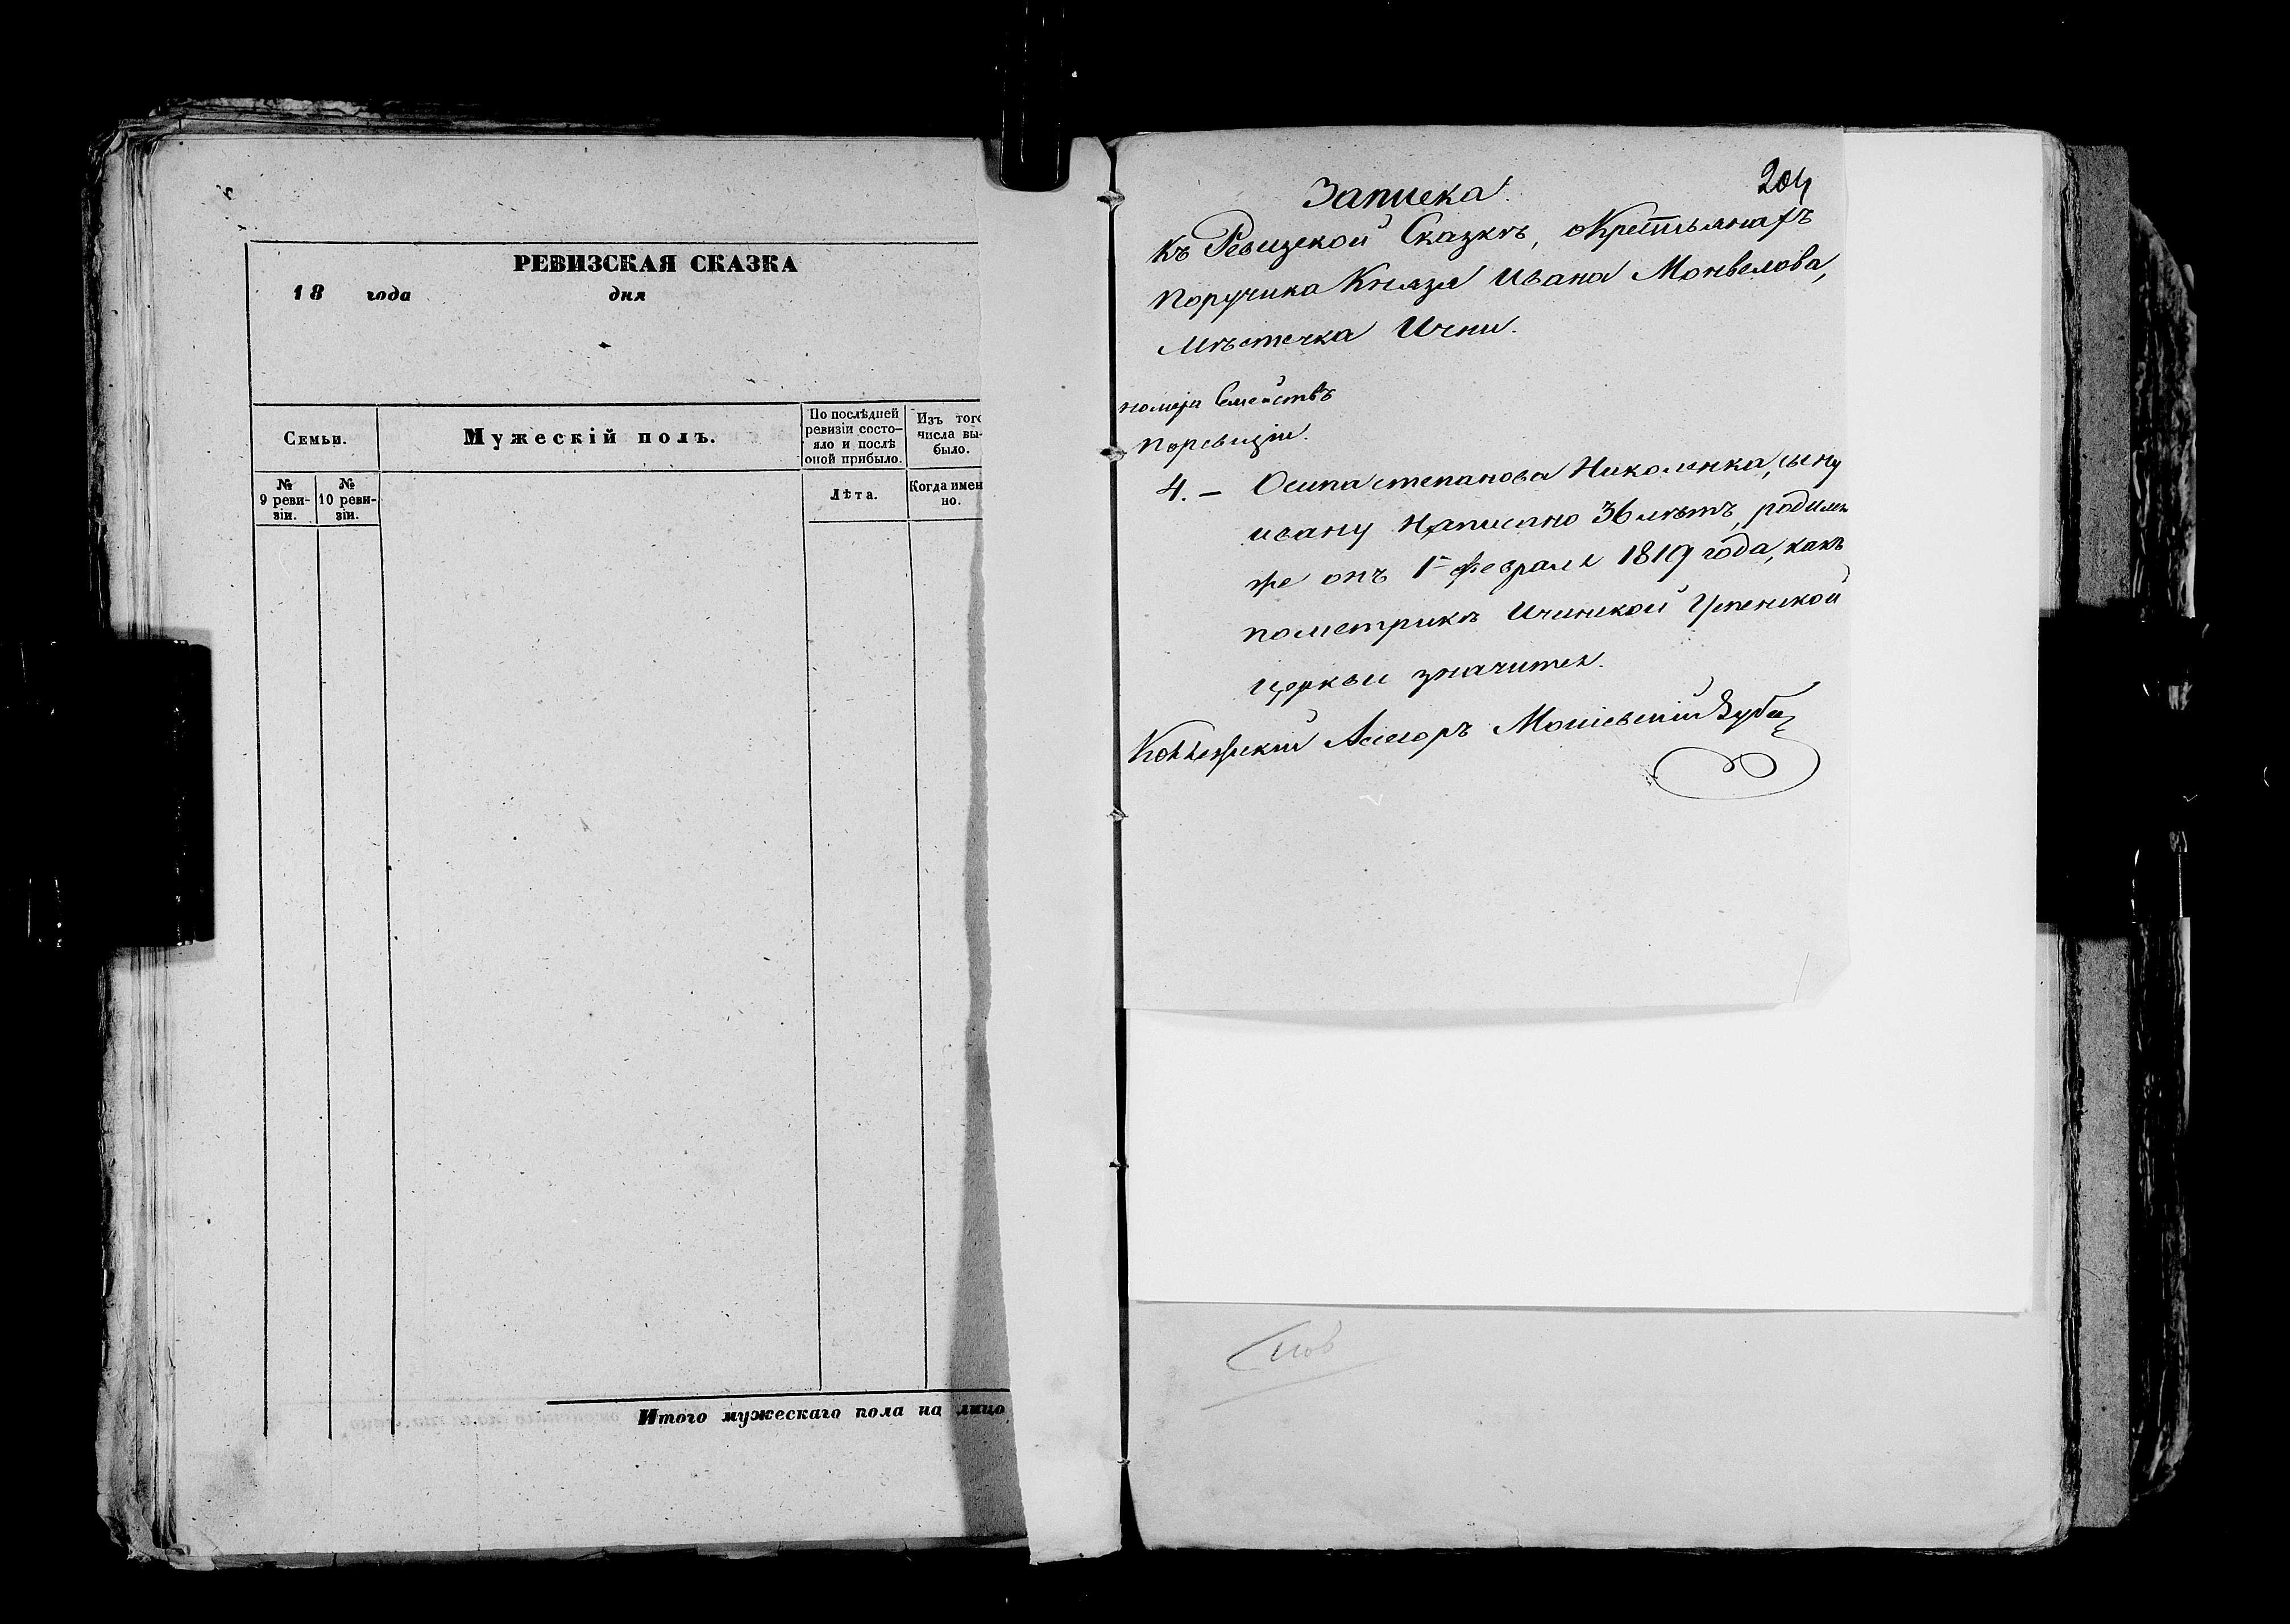 РЕВИЗСКАЯ СКАЗКА
18 года дня
Семьи.
Мужескій полъ.
По послѣдней
ревизіи состо-
яло и послѣ
оной прибыло.
Изъ того
числа вы-
было.
№
9 реви-
зіи.
№
10 реви-
зіи.
Лѣта.
Когда имен
но.
Итого мужескаго пола на лицо
204
Записка
Къ Ревизской Сказкѣ, о Крестьянахъ
Поручика Князя Ивана Монвелова,
Мѣстечка Ични.
номера Семействъ
поревизіи.
4. – Осипа степанова Николенка, сыну
ивану написано 36 лѣтъ, родился
же онъ 1го февраля 1819 года, какъ
пометрикѣ Ичинской Успенской
церкви значится.
Коллежский Асесоръ